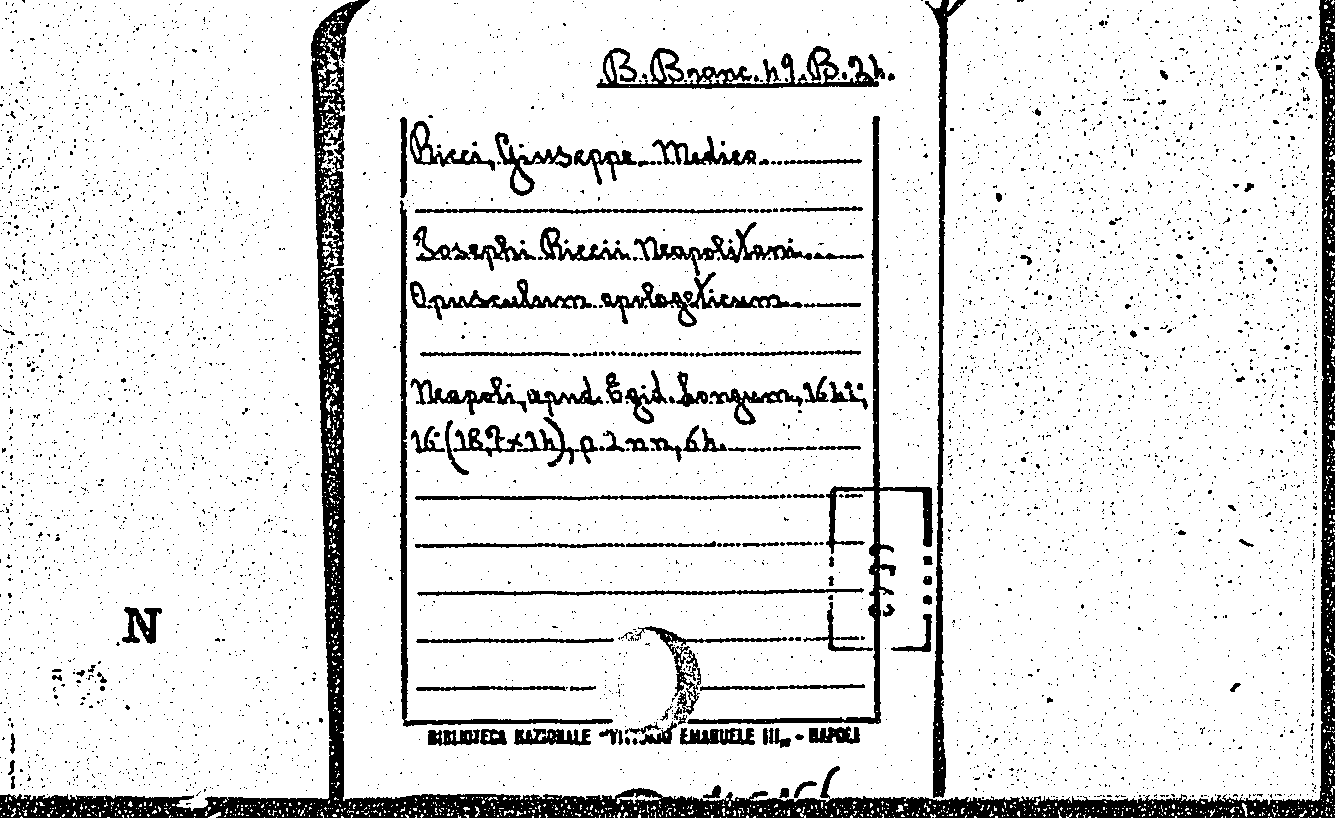 B. Branc. 49. B. 24.
Ricci, Giuseppe Medico
Josephi Riccii Neapolitani
Opusculum apologeticum
Neapoli, apud. Egid. Longum, 1641;
16 (18,7x14), p. 2 nn, 64.
N
BIBLIOTECA NAZIONALE "VITTORIO EMANUELE III„ - NAPOLI